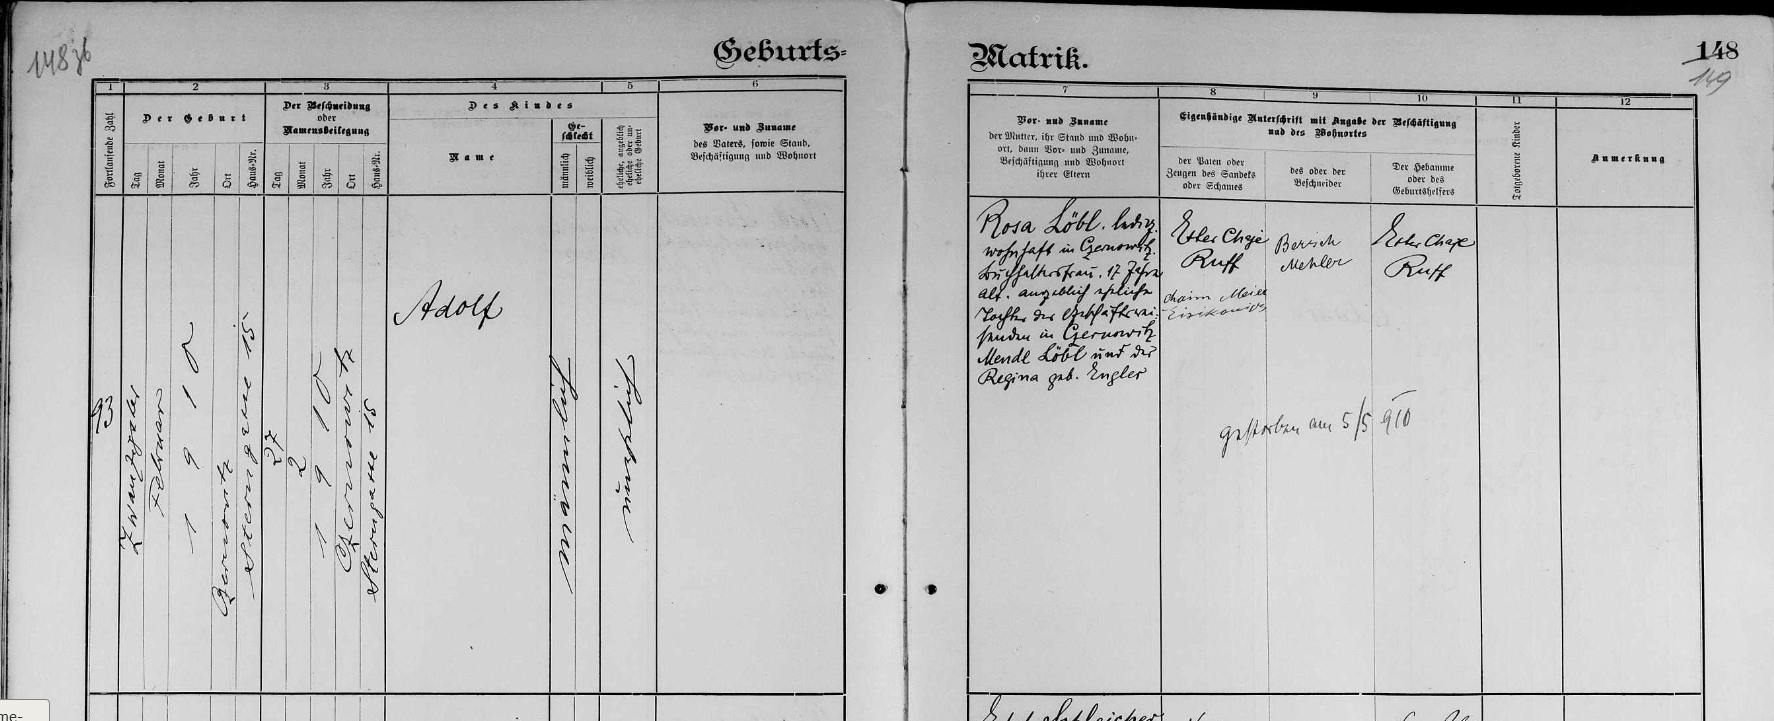 148
Geburts=
Matrik.
148
149
1
2
3
4
5
6
7
8
9
10
11
12
Fortlaufende Zahl
Der Geburt
Tag
Monat
Jahr
Ort
Haus-Nr.
Der Beschneidung
oder
Namensbeilegung
Tag
Monat
Jahr
Ort
Haus-Nr.
Des Kindes
Name
Ge-
schlecht
männlich
weiblich
eheliche, angeblich
eheliche oder un-
eheliche Geburt
Vor- und Zuname
des Vaters, sowie Stand,
Beschäftigung und Wohnort
Vor- und Zuname
der Mutter, ihr Stand und Wohn-
ort, dann Vor- und Zuname,
Beschäftigung und Wohnort
ihrer Eltern
Eigenhändige Unterschrift mit Angabe der Beschäftigung
und des Wohnortes
der Paten oder
Zeugen des Sandeks
oder Schames
des oder der
Beschneider
Der Hebamme
oder des
Geburtshelfers
Totgeborene Kinder
Anmerkung
93
Zwanzigster
Februar
1910
Czernowitz
Sterngasse 15
27
2
1910
Czernowitz
Sterngasse 15
Adolf
männlich
unehelich
Rosa Löbl, ledig,
wohnhaft in Czernowitz
Buchhaltersfrau, 17 Jahre
alt, angeblich eheliche
Tochter des Geschäftsrei-
senden in Czernowitz
Mendl Löbl und der
Regina geb. Engler
Ester Chaje
Ruff
Chaim Meier
Berisch
Mehler
Ester Chaje
Ruff
gestorben am 5/5 910